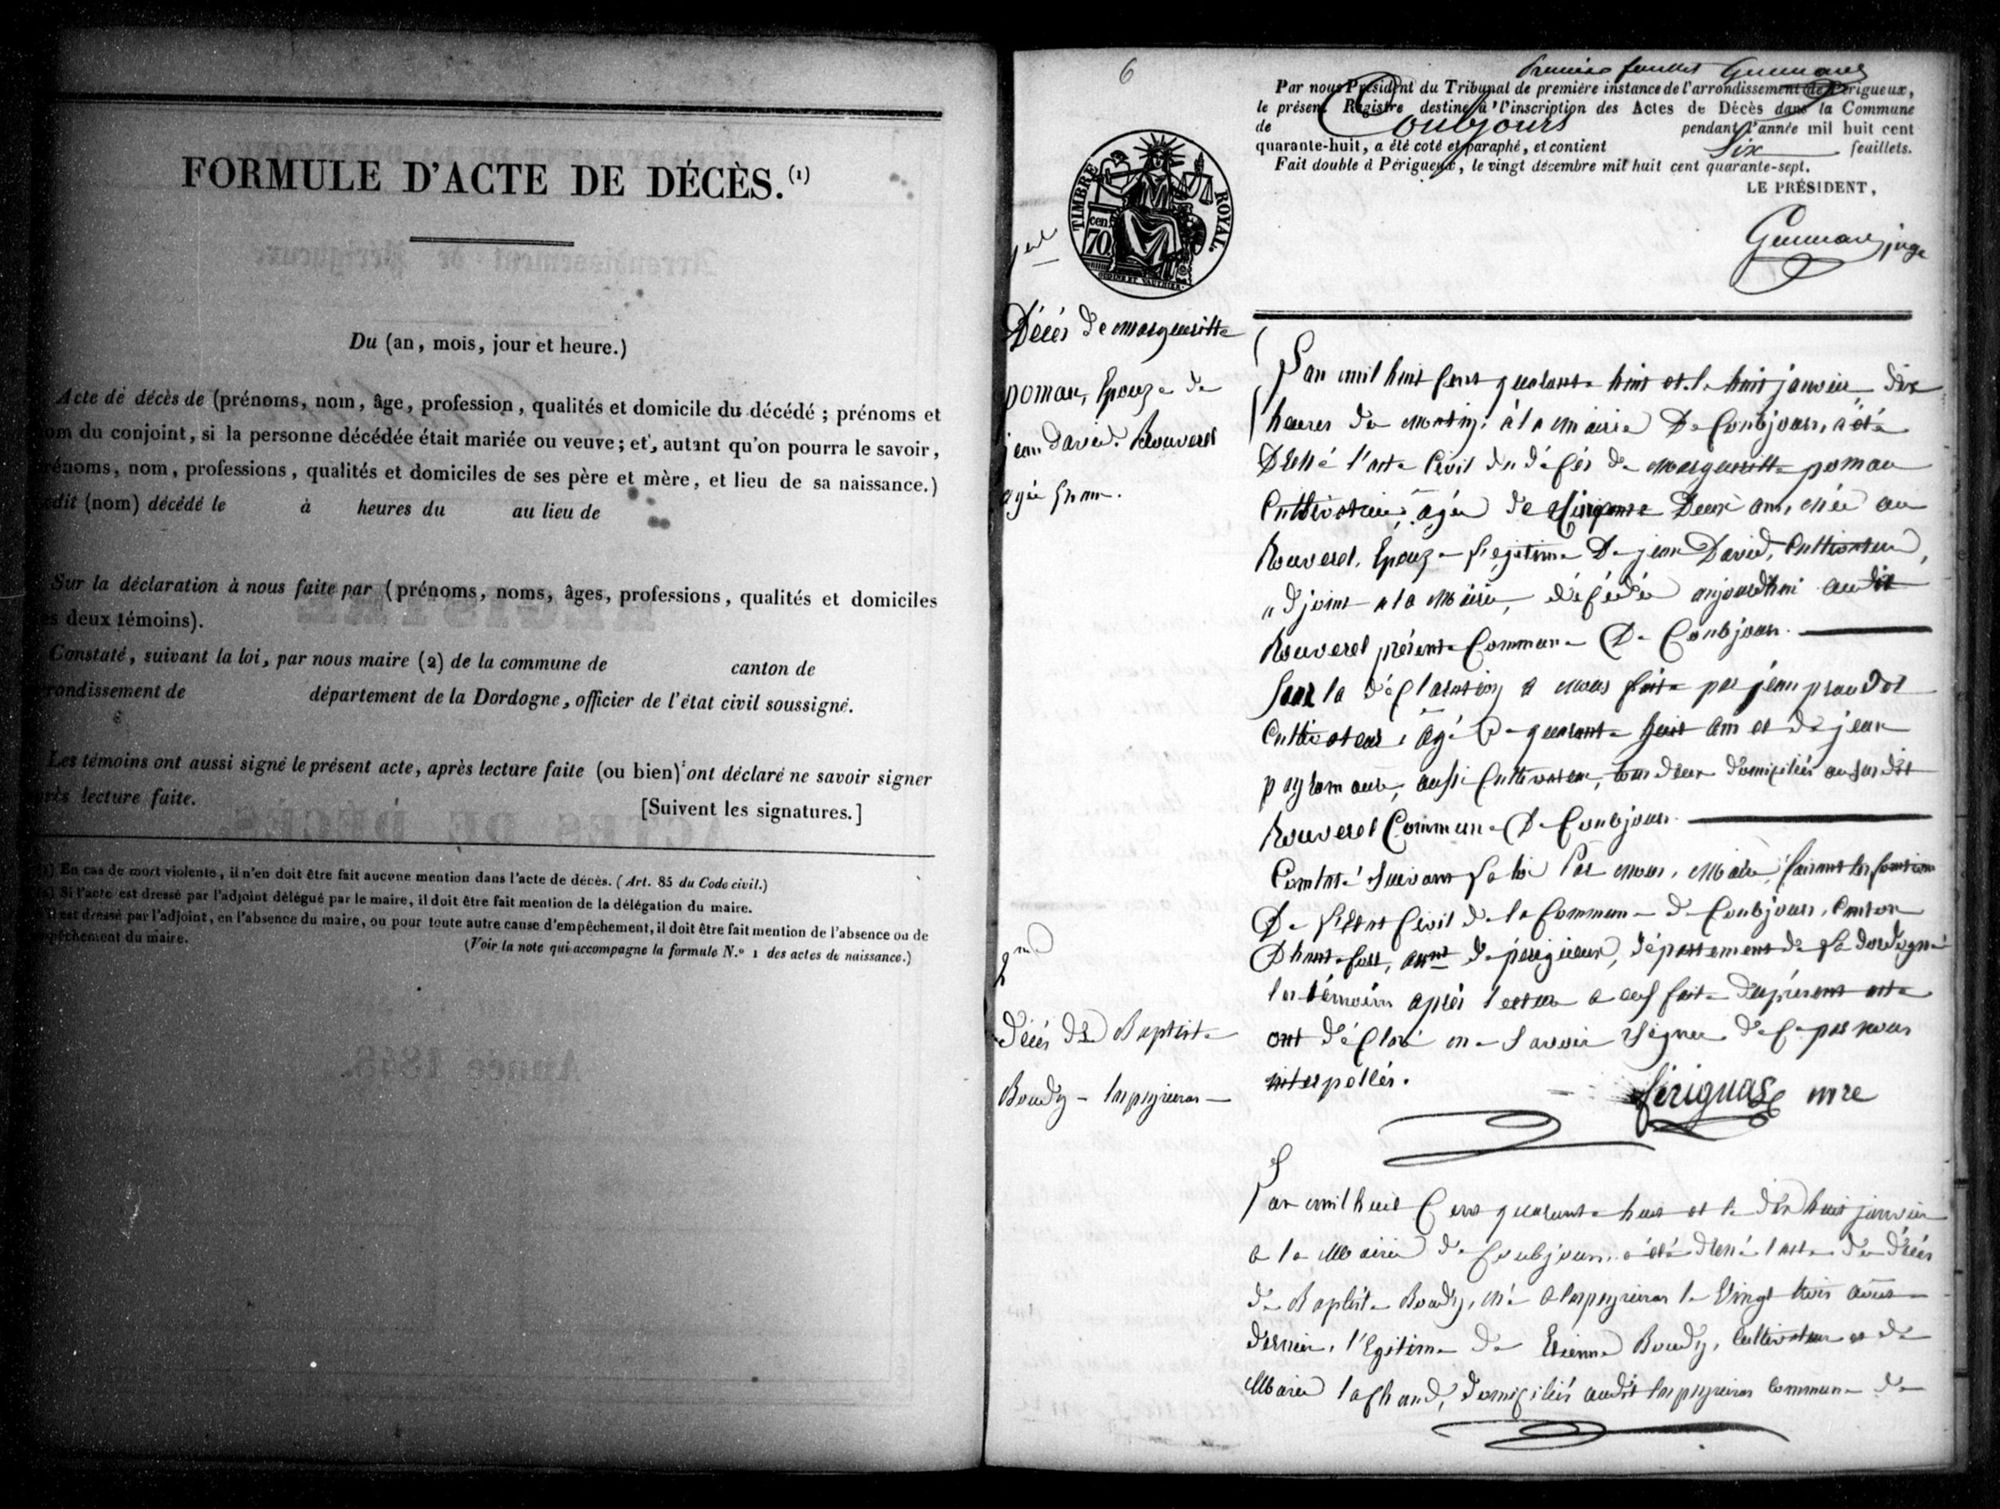 FORMULE D'ACTE DE DÉCÈS.(1)
Du (an, mois, jour et heure.)
Acte de décès de (prénoms, nom, âge, profession, qualités et domicile du décédé ; prénoms et
om du conjoint, si la personne décédée était mariée ou veuve ; et, autant qu'on pourra le savoir,
énoms, nom, professions, qualités et domiciles de ses père et mère, et lieu de sa naissance.)
edit (nom) décédé le à heures du au lieu de
Sur la déclaration à nous faite par (prénoms, noms, âges, professions, qualités et domiciles
es deux témoins).
Constaté, suivant la loi, par nous maire (2) de la commune de canton de
rondissement de département de la Dordogne, officier de l'état civil soussigné.
Les témoins ont aussi signé le présent acte, après lecture faite (ou bien) ont déclaré ne savoir signer
rès lecture faite.
[Suivent les signatures.]
(1) En cas de mort violente, il n'en doit être fait aucune mention dans l'acte de décès. (Art. 85 du Code civil.)
(2) Si l'acte est dressé par l'adjoint délégué par le maire, il doit être fait mention de la délégation du maire.
il est dressé par l'adjoint, en l'absence du maire, ou pour toute autre cause d'empêchement, il doit être fait mention de l'absence ou de
mpêchement du maire. (Voir la note qui accompagne la formule N.º 1 des actes de naissance.)
6
Premier feuillet
Par nous Président du Tribunal de première instance de l'arrondissement de Périgueux,
le présent Registre destiné à l'inscription des Actes de Décès dans la Commune
de Coubjours pendant l'année mil huit cent
quarante-huit, a été coté et paraphé, et contient Six feuillets.
Fait double à Périgueux, le vingt décembre mil huit cent quarante-sept.
LE PRÉSIDENT,
juge
TIMBRE ROYAL
70 cen
Décès de margueritte
pomau, Epouze de
jean david. Rouverel
agée
L'an mil huit cent quarante huit et le huit janvier, dix
heures du matin, à la mairie De Coubjours, a été
Dressé l'acte Civil du décés de margueritte pomau
Cultivatrice, âgée de cinquante Deux ans, née au
Rouverel, Epouze légitime De jean David, Cultivateur,
adjoint a la Mairie, décédée aujourdhui audit
Rouverel présente Commune De Coubjours.
Sur la déclaration a nous faite par jean
Cultivateur, âgé De quarante huit ans et de jean
aussi Cultivateur, tous deux domiciliés au susdit
Rouverel Commune De Coubjours.
Constaté suivant la loi Par nous, Maire, faisant les fonctions
De l'Etat Civil de la Commune de Coubjours, Canton
Dhautefort, arrmt de périgueux, département de la dordogne
les témoins après lecture a eux faite du présent acte
ont déclaré ne savoir signer de ce par nous
interpellés.
Sérignac mre
2me
décés de Baptiste
Boudy
L'an mil huit Cent quarante huit et le dix huit janvier
a la Mairie de Coubjours, a été dressé l'acte du décès
de Baptiste Boudy, né a le Vingt trois
dernier, légitime de Etienne Boudy, Cultivateur et de
Marie domiciliés audit commune de